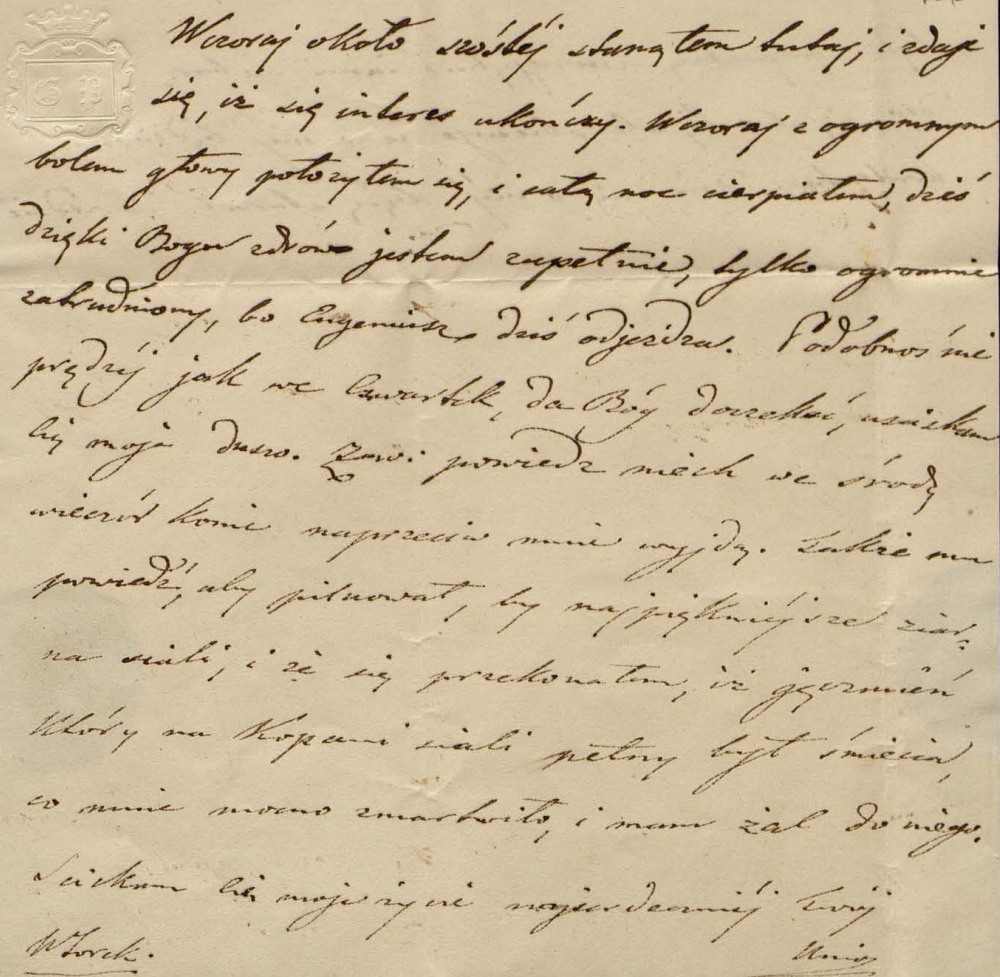 Wczoraj około szóstéj stanąłem tutaj, i zdaje
się, iż się interes ukończy. Wczoraj z ogromnym
bolem głowy położyłem się, i całą noc cierpiałem, dziś
dzięki Bogu zdrów jestem zupełnie, tylko ogromnie
zatrudniony, bo Eugeniusz dziś odjeżdża. Podobnoś nie
prędzéj jak we Czwartek, da Bóg doczekać, uściskam
Cię moja duszo. powiedz niech we środę
wieczór konie naprzeciw mnie wyjdą. Także mu
powiedź, aby pilnował, by najpiękniéjsze ziar-
na siali, i że się przekonałem, iż jęczmień
który na Kopani siali pełny był śmiecia,
co mnie mocno zmartwiło, i mam żal do niego.
Ściskam Cię moje życie najserdeczniéj Twój
Wtorek.